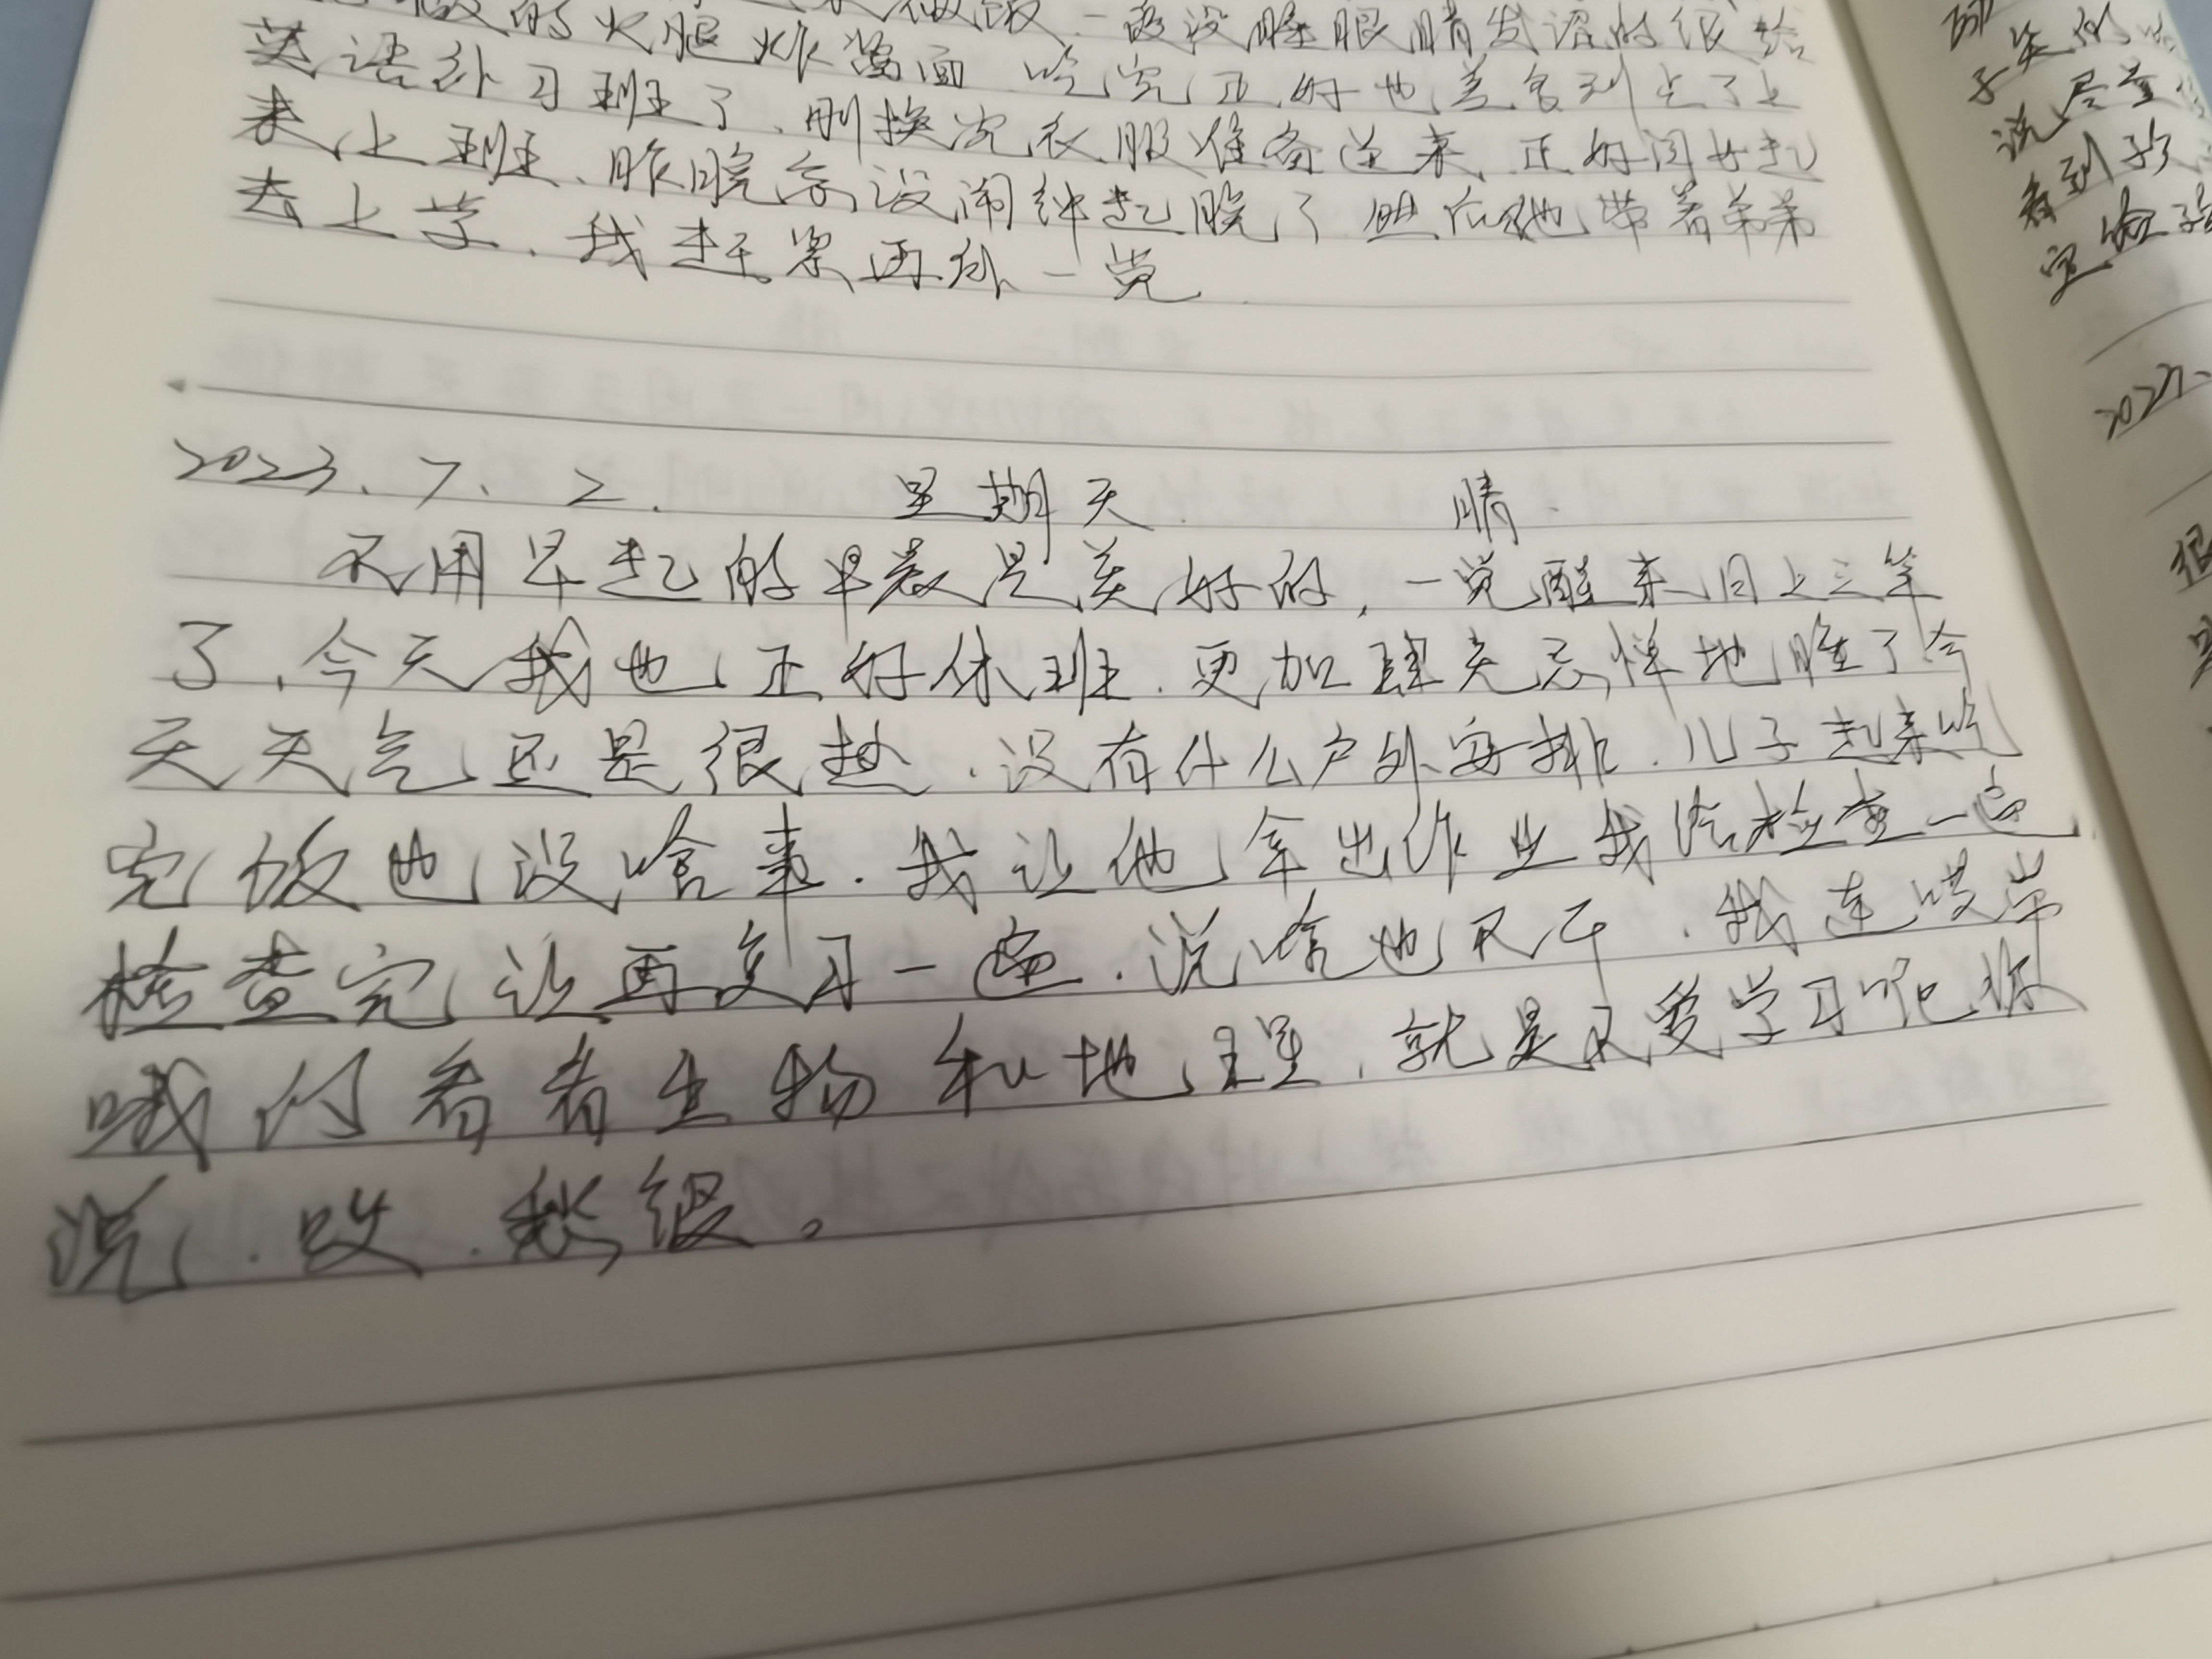 做的火腿炸酱面 吃完正好也差不多到点了上
英语补习班了、刚换完衣服准备送来、正好闺女起
来上班、昨晚忘设闹钟起晚了 然后她带着弟弟
去上学、我赶紧再补一觉
2023、7、2. 星期天 晴、
不用早起的早晨是美好的,一觉醒来日上三竿
了、今天我也正好休班、更加肆无忌惮地睡了今
天天气还是很热、没有什么户外安排、儿子起来吃
完饭也没啥事、我让他拿出作业我给检查一遍、
检查完让再复习一遍、说啥也不干、我连哄带
哦的看看生物和地理、就是不爱学习呢你
说、哎、愁得。
子
说尽量
看到孩